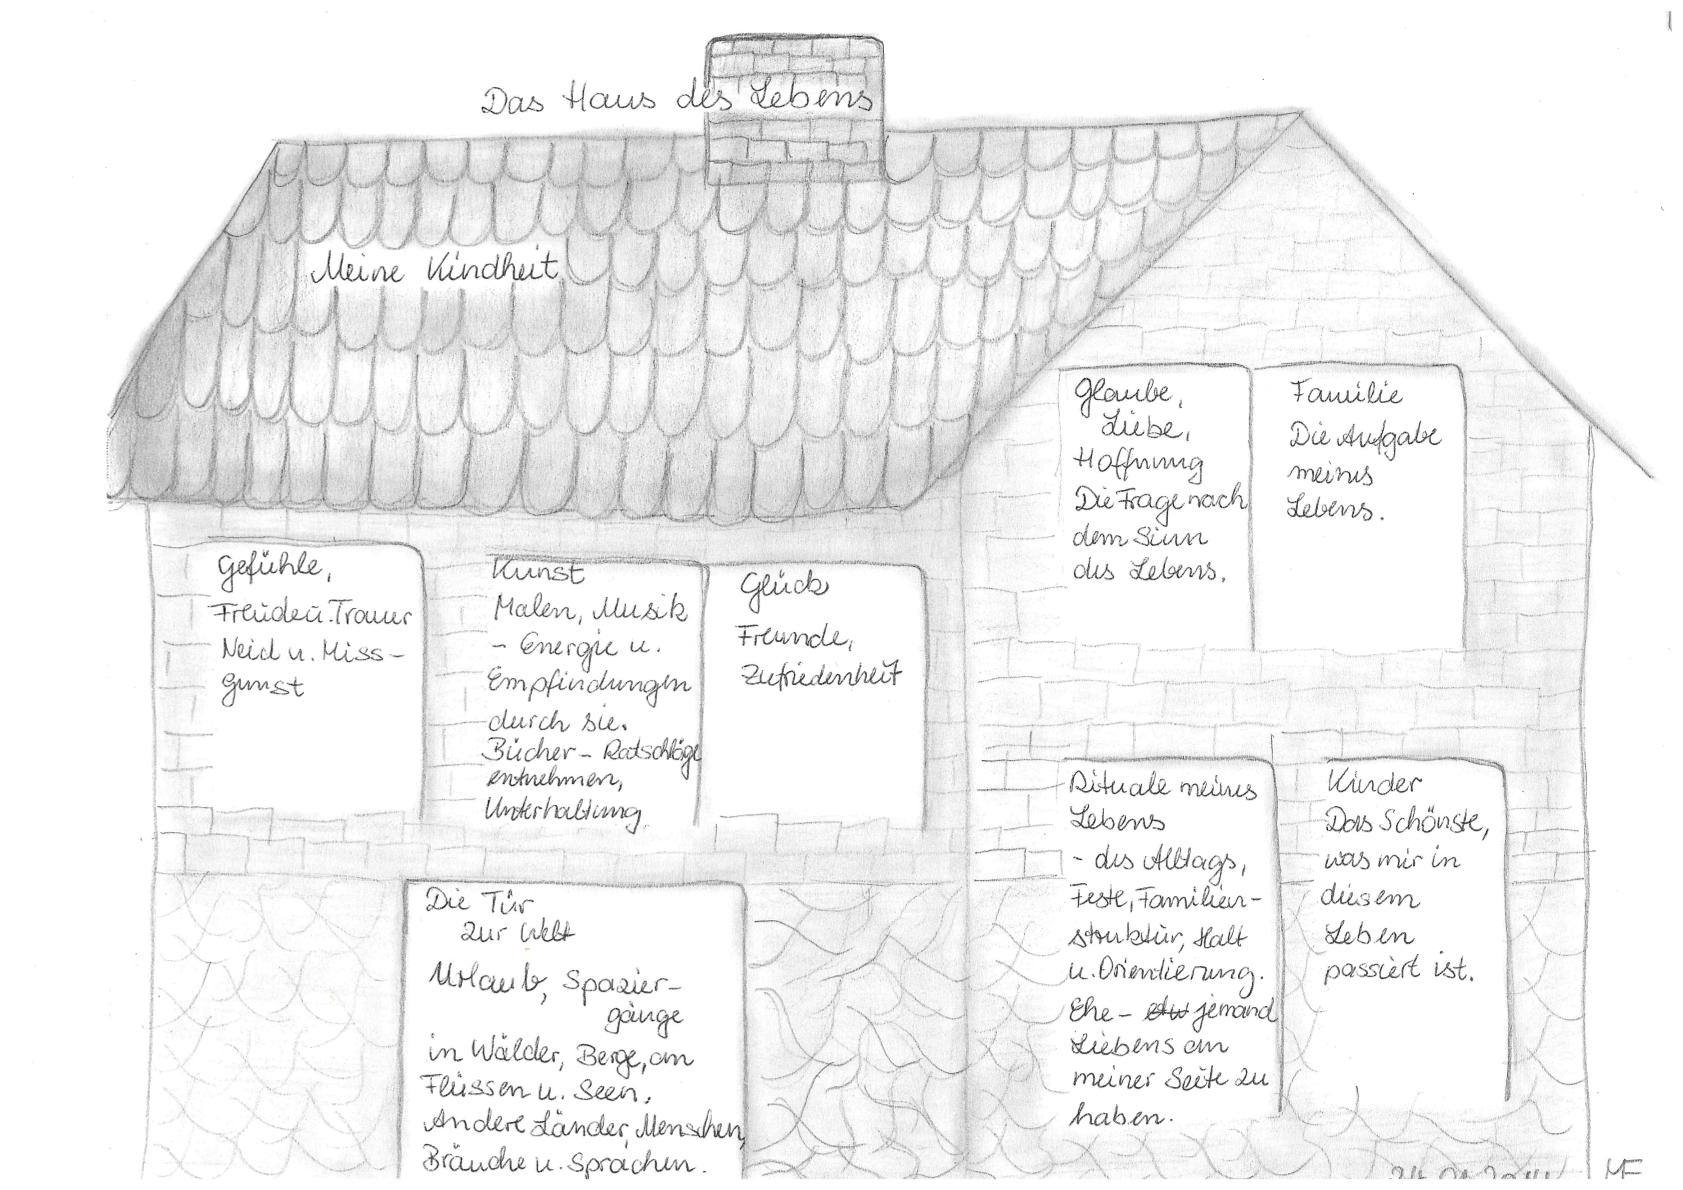 Das Haus des Lebens
Meine Kindheit
Glaube,
Liebe,
Hoffnung
Die Frage nach
dem Sinn
des Lebens.
Familie
Die Aufgabe
meines
Lebens.
Gefühle,
Freude u. Trauer
Neid u. Miss-
gunst
Kunst
Malen, Musik
- Energie u.
Empfindungen
durch sie.
Bücher - Ratschläge
entnehmen,
Unterhaltung
Glück
Freunde,
Zufriedenheit
Rituale meines
Lebens
- des Alltags,
Feste, Familien-
struktur, Halt
u. Orientierung.
Ehe - jemand
Liebens an
meiner Seite zu
haben.
Kinder
Das Schönste,
was mir in
diesem
Leben
passiert ist.
Die Tür
zur Welt
Urlaub, Spazier-
gänge
in Wälder, Berge, an
Flüssen u. Seen,
Andere Länder, Menschen,
Bräuche u. Sprachen.
MF